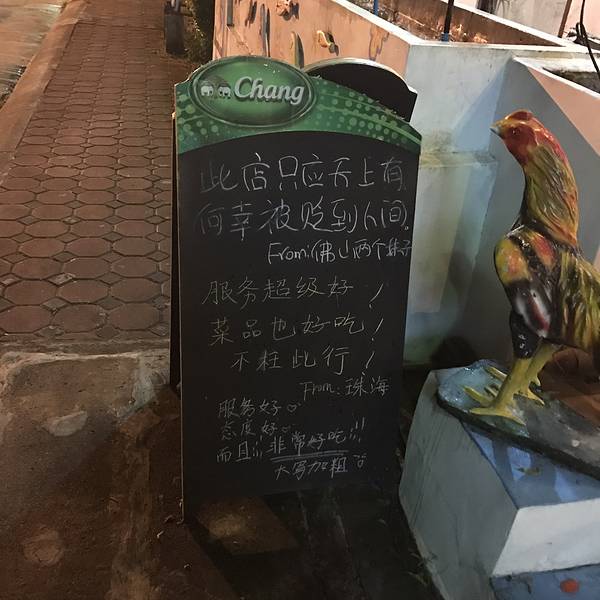 Chang
此店只应天上有,
何幸被贬到人间。
From:佛山两个妹子
服务超级好!
菜品也好吃!
不枉此行!
From:珠海
服务好♡
态度好♡
而且!!非常好吃!!!
大写加粗